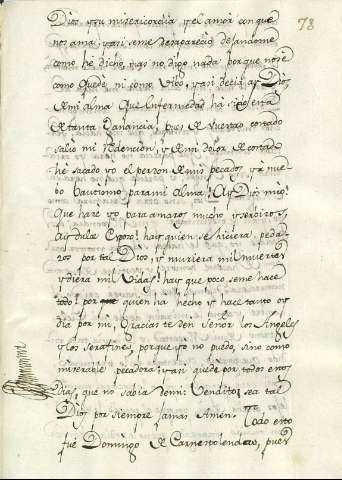 78
Dios, y su misericordia, y el amor con que
nos ama; y asi se me desaparecio dejandome
como hè dicho, mas no digo nada porque no se
como quedè, ni como vibo, y asi decia ay Dios
de mi alma que enfermedad ha sido esta
de tanta ganancia, pues de vuestro costado
salio mi Redencion, y de mi dolor de costado
he sacado yo el perdon de mis pecados, y nue-
bo bautismo para mi Alma! Ay Dios mio!
que hare yo para amaros mucho, y serbiros,
ay dulce Esposo! hay quien se hiciera peda-
zos por tal Dios, y muriera mil muertes
y diera mil vidas! hay que poco se me hace
todo! por quien ha hecho, y hace tanto oy
dia por mi, Gracias te den Señor los Angeles
y los Serafines, porque yo no puedo, sino como
miserable pecadora; y asi quedè por todos estos
dias, que no sabia de mi. Bendito sea tal
Dios por siempre jamas Amen. Todo esto
fuè Domingo de Carnestolendas, pues